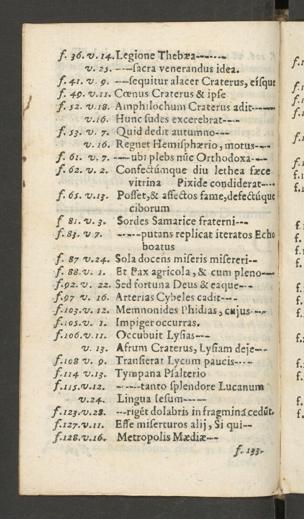 f. 36. v. 14. Legione Thebæa-------
v. 23. ----sacra venerandus idea.
f. 41. v. 9. ---sequitur alacer Craterus, eſsque
f. 49. v. 11. Cœnus Craterus & ipſe
f. 52. v. 18. Amphilochum Craterus adit-----
v. 16. Hunc ſudes excerebrat----
f. 53. v. 7. Quid dedit autumno---
v. 16. Regnet Hemiſphærio, motus---
f. 61. v. 7. ---ubi plebs nūc Orthodoxa---
f. 62. v. 2. Confectúmque diu lethea fæce
vitrina Pixide condiderat---
f. 65. v. 13. Poſſet, & affectos fame, defectúque
ciborum
f 81. v. 3. Sordes Samarice fraterni---
f. 83. v 7. -----putans replicat iteratos Echo
boatus
f. 87 v. 24. Sola docens miſeris miſereri--
f. 88. v. 1. Et Pax agricola, & cum pleno---
f. 92. v. 22. Sed fortuna Deus & eaque---
f. 97 v. 16. Arterias Cybeles cadit----
f. 103. v. 12. Memnonides Phidias, cujus---
f. 105. v. 1. Impiger occurras.
f. 106. v. 11. Occubuit Lyſias---
v. 13. Afrum Craterus, Lyſiam deje---
f. 108 v. 9. Tranſierat Lycum paucis----
f. 114 v. 13. Tympana Pſalterio
f. 115. v. 12. ------tanto ſplendore Lucanum
v. 24. Lingua ſeſum-----
f. 123. v. 28. ---rigēt dolabris in fragminá cedūt.
f. 127. v. 11. Eſſe miſerturos alij, Si qui--
f. 128. v. 16. Metropolis Mædiæ---
f. 133.